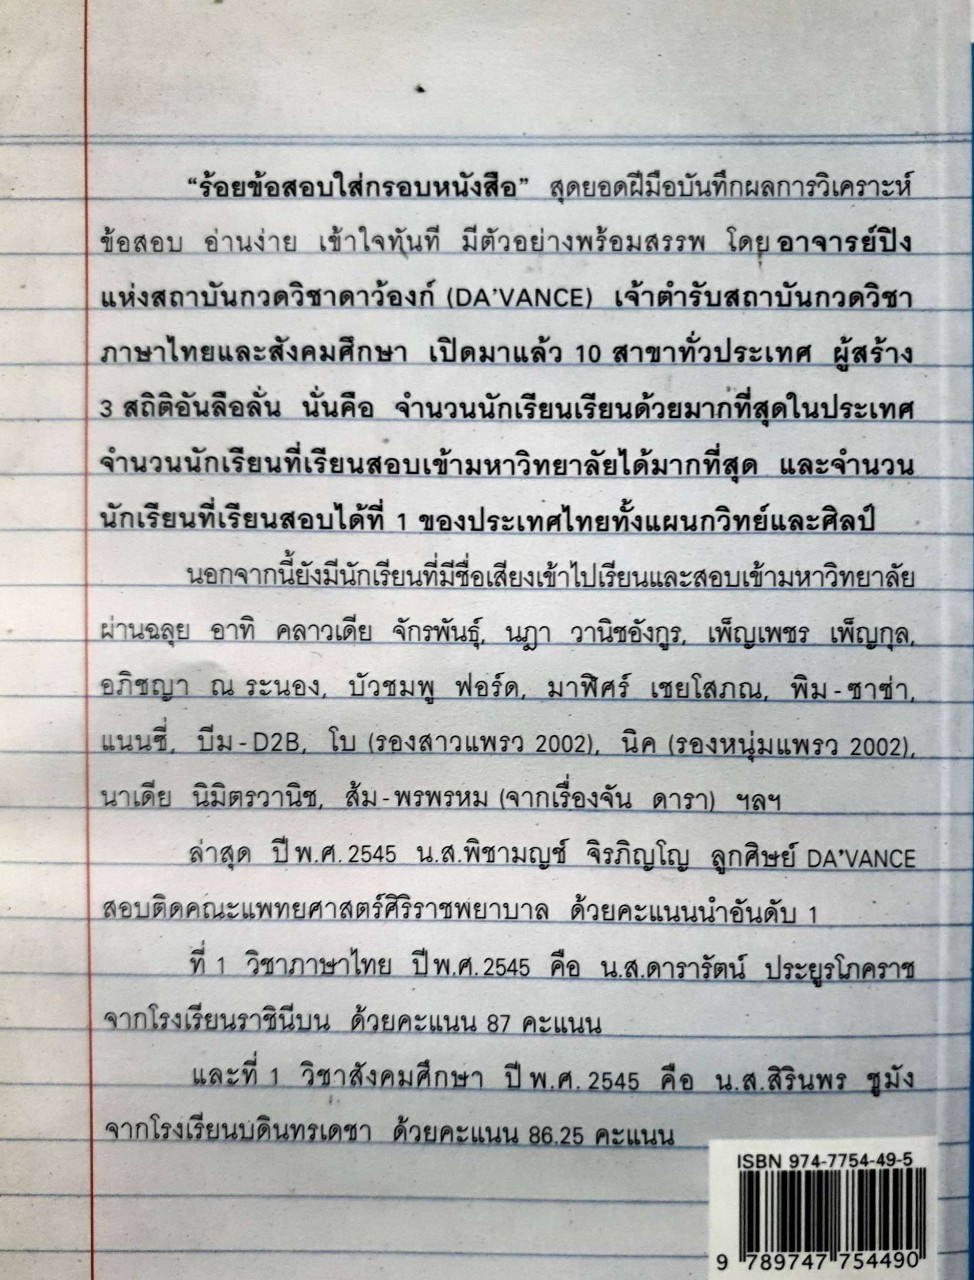 “ร้อยข้อสอบใส่กรอบหนังสือ” สุดยอดฝีมือบันทึกผลการวิเคราะห์
ข้อสอบ อ่านง่าย เข้าใจทันที มีตัวอย่างพร้อมสรรพ โดย อาจารย์ปิง
แห่งสถาบันกวดวิชาดาว้องก์ (DA'VANCE) เจ้าตำรับสถาบันกวดวิชา
ภาษาไทยและสังคมศึกษา เปิดมาแล้ว 10 สาขาทั่วประเทศ ผู้สร้าง
3 สถิติอันลือลั่น นั่นคือ จำนวนนักเรียนเรียนด้วยมากที่สุดในประเทศ
จำนวนนักเรียนที่เรียนสอบเข้ามหาวิทยาลัยได้มากที่สุด และจำนวน
นักเรียนที่เรียนสอบได้ที่ 1 ของประเทศไทยทั้งแผนกวิทย์และศิลป์
นอกจากนี้ยังมีนักเรียนที่มีชื่อเสียงเข้าไปเรียนและสอบเข้ามหาวิทยาลัย
ผ่านฉลุย อาทิ คลาวเดีย จักรพันธุ์, นฎา วานิชอังกูร, เพ็ญเพชร เพ็ญกุล,
อภิชญา ณ ระนอง, บัวชมพู ฟอร์ด, มาฬิศร์ เชยโสภณ, พิม - ซาซ่า,
แนนซี่, บีม - D2B, โบ (รองสาวแพรว 2002), นิค (รองหนุ่มแพรว 2002),
นาเดีย นิมิตรวานิช, ส้ม - พรพรหม (จากเรื่องจัน ดารา) ฯลฯ
ล่าสุด ปี พ.ศ. 2545 น.ส.พิชามญช์ จิรภิญโญ ลูกศิษย์ DA'VANCE
สอบติดคณะแพทยศาสตร์ศิริราชพยาบาล ด้วยคะแนนนำอันดับ 1
ที่ 1 วิชาภาษาไทย ปี พ.ศ. 2545 คือ น.ส.ดารารัตน์ ประยูรโภคราช
จากโรงเรียนราชินีบน ด้วยคะแนน 87 คะแนน
และที่ 1 วิชาสังคมศึกษา ปี พ.ศ. 2545 คือ น.ส.สิรินพร ชูมัง
จากโรงเรียนบดินทรเดชา ด้วยคะแนน 86.25 คะแนน
ISBN 974-7754-49-5
9 789747 754490